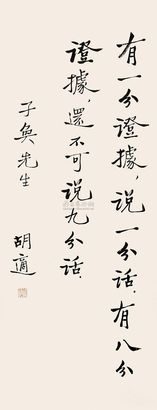 有一分證據,说一分话.有八分
證據,還不可说九分话.
子奐先生
胡適